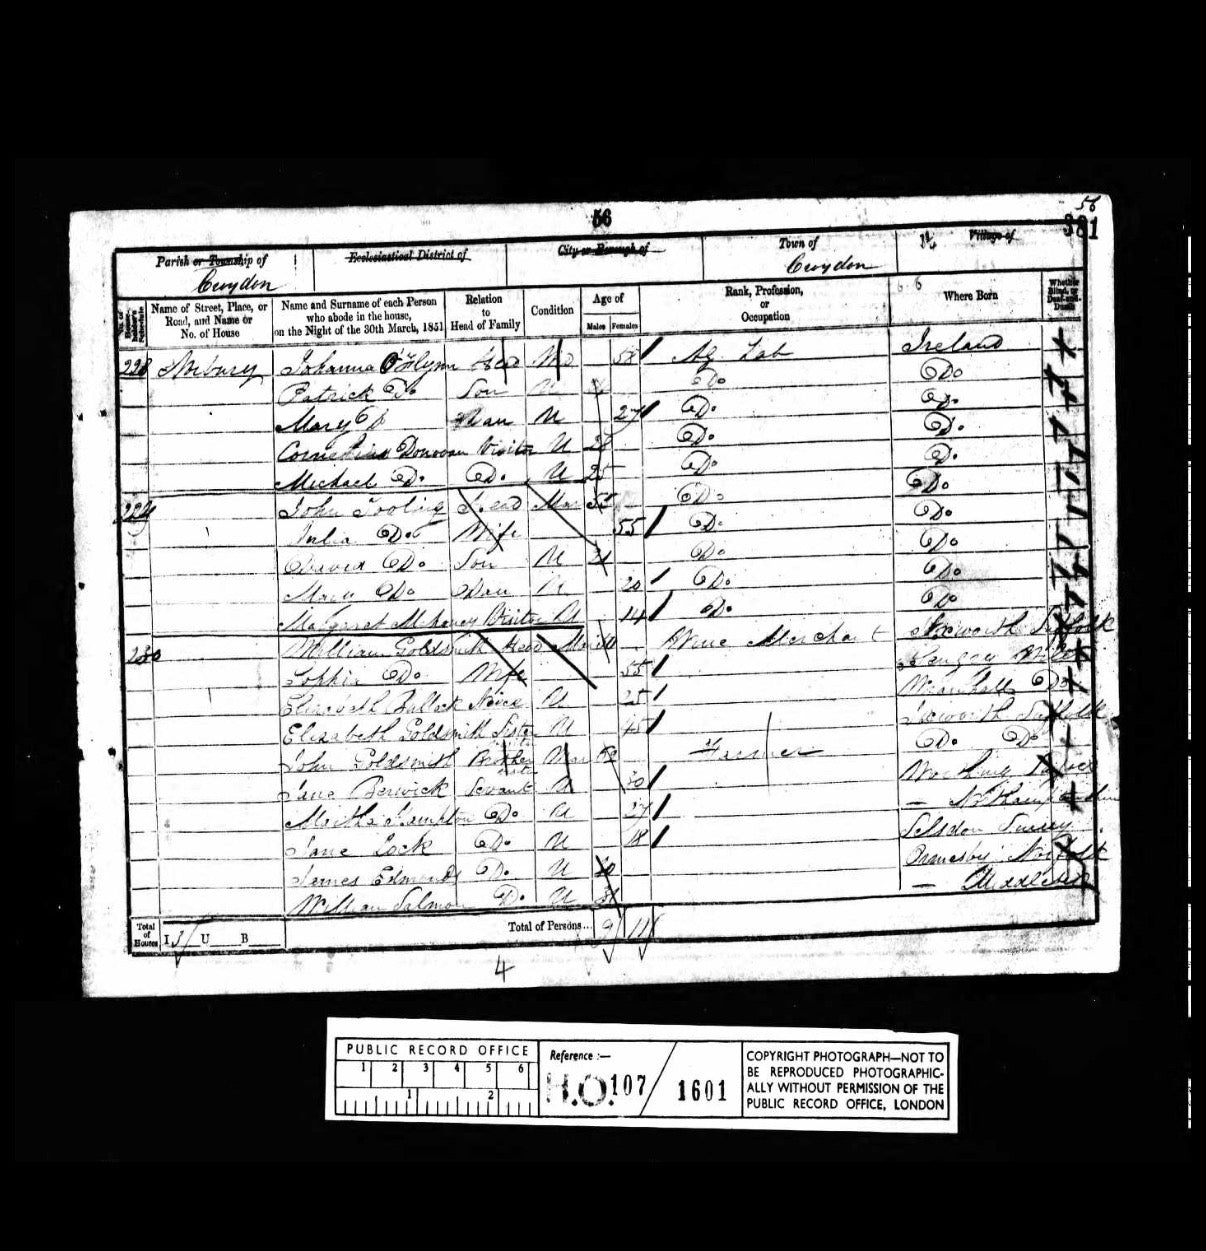 56
56
381
Parish or Township of
Ecclesiastical District of
City or Borough of
Town of
Village of
Croydon
Croydon
No. of House-holder's Schedule
Name of Street, Place, or Road, and Name or No. of House
Name and Surname of each Person who abode in the house, on the Night of the 30th March, 1851
Relation to Head of Family
Condition
Age of
Males
Females
Rank, Profession, or Occupation
Where Born
Whether Blind, or Deaf-and-Dumb
228 Norbury Johanna O'Flynn Head 58 Ag Lab Ireland
Patrick Do. Son U Do. Do.
Mary Do U 27 Do. Do.
Cornelius Donovan Visitor U 28 Do. Do.
Michael Do. Do. U 25 Do. Do.
229 John Tooling Head Mar 55 Do. Do.
Julia Do. Wife 55 Do. Do.
David Do. Son U 21 Do. Do.
Mary Do. Dau U 20 Do. Do.
Margaret Mahoney Visitor U 14 Do. Do.
230 William Goldsmith Head Mar Wine Merchant Ixworth Suffolk
Sophia Do. Wife 55
Elizabeth Niece U 25 Do
Elizabeth Goldsmith Sister U 45 Ixworth Suffolk
John Goldsmith Brother Mar 52 Farmer Do. Do.
Jane Berwick Servant U 30
Martha Do. U 27 — Northamptonshire
Jane Lock Do. U 18 Selsdon Surrey
James Edmonds Do. U 20 Ormesby Norfolk
William Salmon Do. U — Middlesex
Total of Houses I U B
Total of Persons... 9 11
4
PUBLIC RECORD OFFICE
1 2 3 4 5 6
1 2
Reference :-
H.O. 107 / 1601
COPYRIGHT PHOTOGRAPH—NOT TO
BE REPRODUCED PHOTOGRAPHIC-
ALLY WITHOUT PERMISSION OF THE
PUBLIC RECORD OFFICE, LONDON